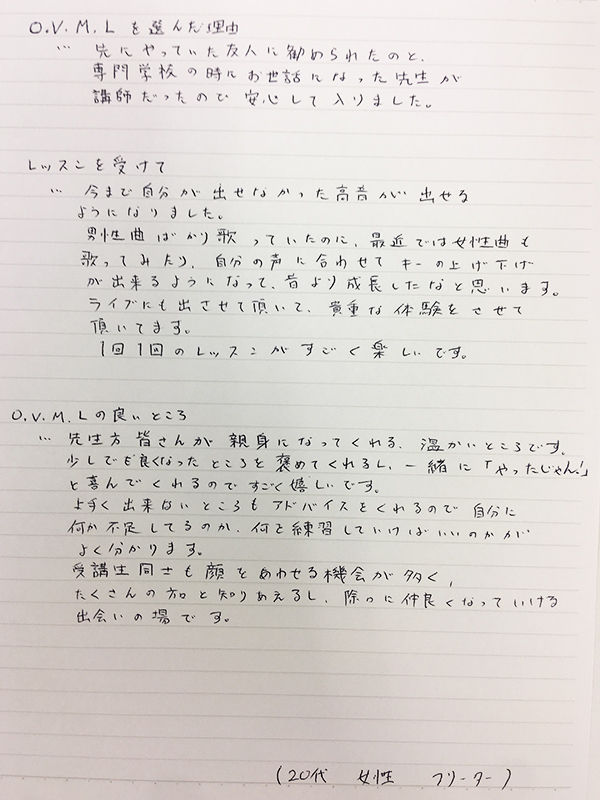 O.V.M.L を選んだ理由
… 先にやっていた友人に勧められたのと、
専門学校の時にお世話になった先生が
講師だったので安心して入りました。
レッスンを受けて
… 今まで自分が出せなかった高音が出せる
ようになりました。
男性曲ばかり歌っていたのに、最近では女性曲も
歌ってみたり、自分の声に合わせてキーの上げ下げ
が出来るようになって、昔より成長したなと思います。
ライブにも出させて頂いて、貴重な体験をさせて
頂いてます。
1回1回のレッスンがすごく楽しいです。
O.V.M.Lの良いところ
… 先生方皆さんが親身になってくれる、温かいところです。
少しでも良くなったところを褒めてくれるし、一緒に「やったじゃん!」
と喜んでくれるのですごく嬉しいです。
上手く出来ないところもアドバイスをくれるので自分に
何が不足してるのか、何を練習していけばいいのかが
よく分かります。
受講生同士も顔をあわせる機会が多く、
たくさんの方と知りあえるし、除々に仲良くなっていける
出会いの場です。
(20代 女性 フリーター)